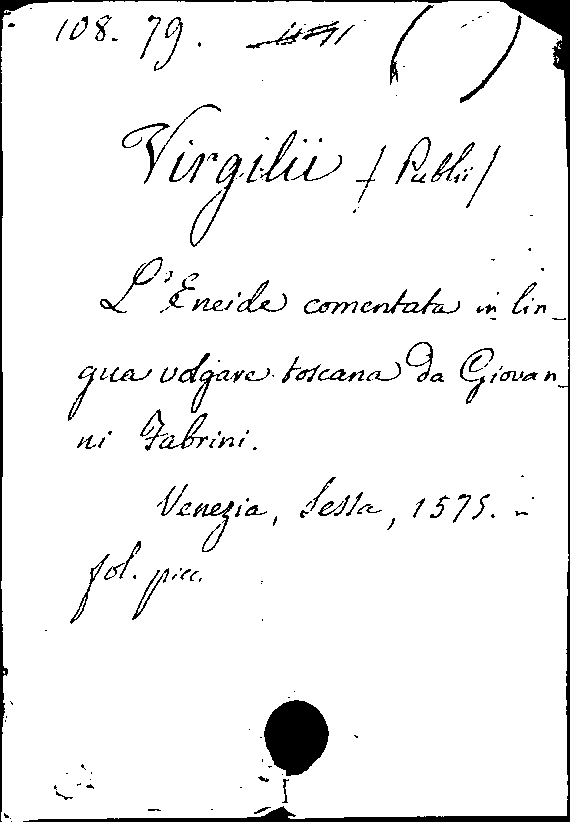 108. 79.
Virgilii /Publii/
L'Eneide comentata in lin-
gua volgare toscana da Giovan-
ni Fabrini.
Venezia, Sessa, 1575. in
fol. picc.